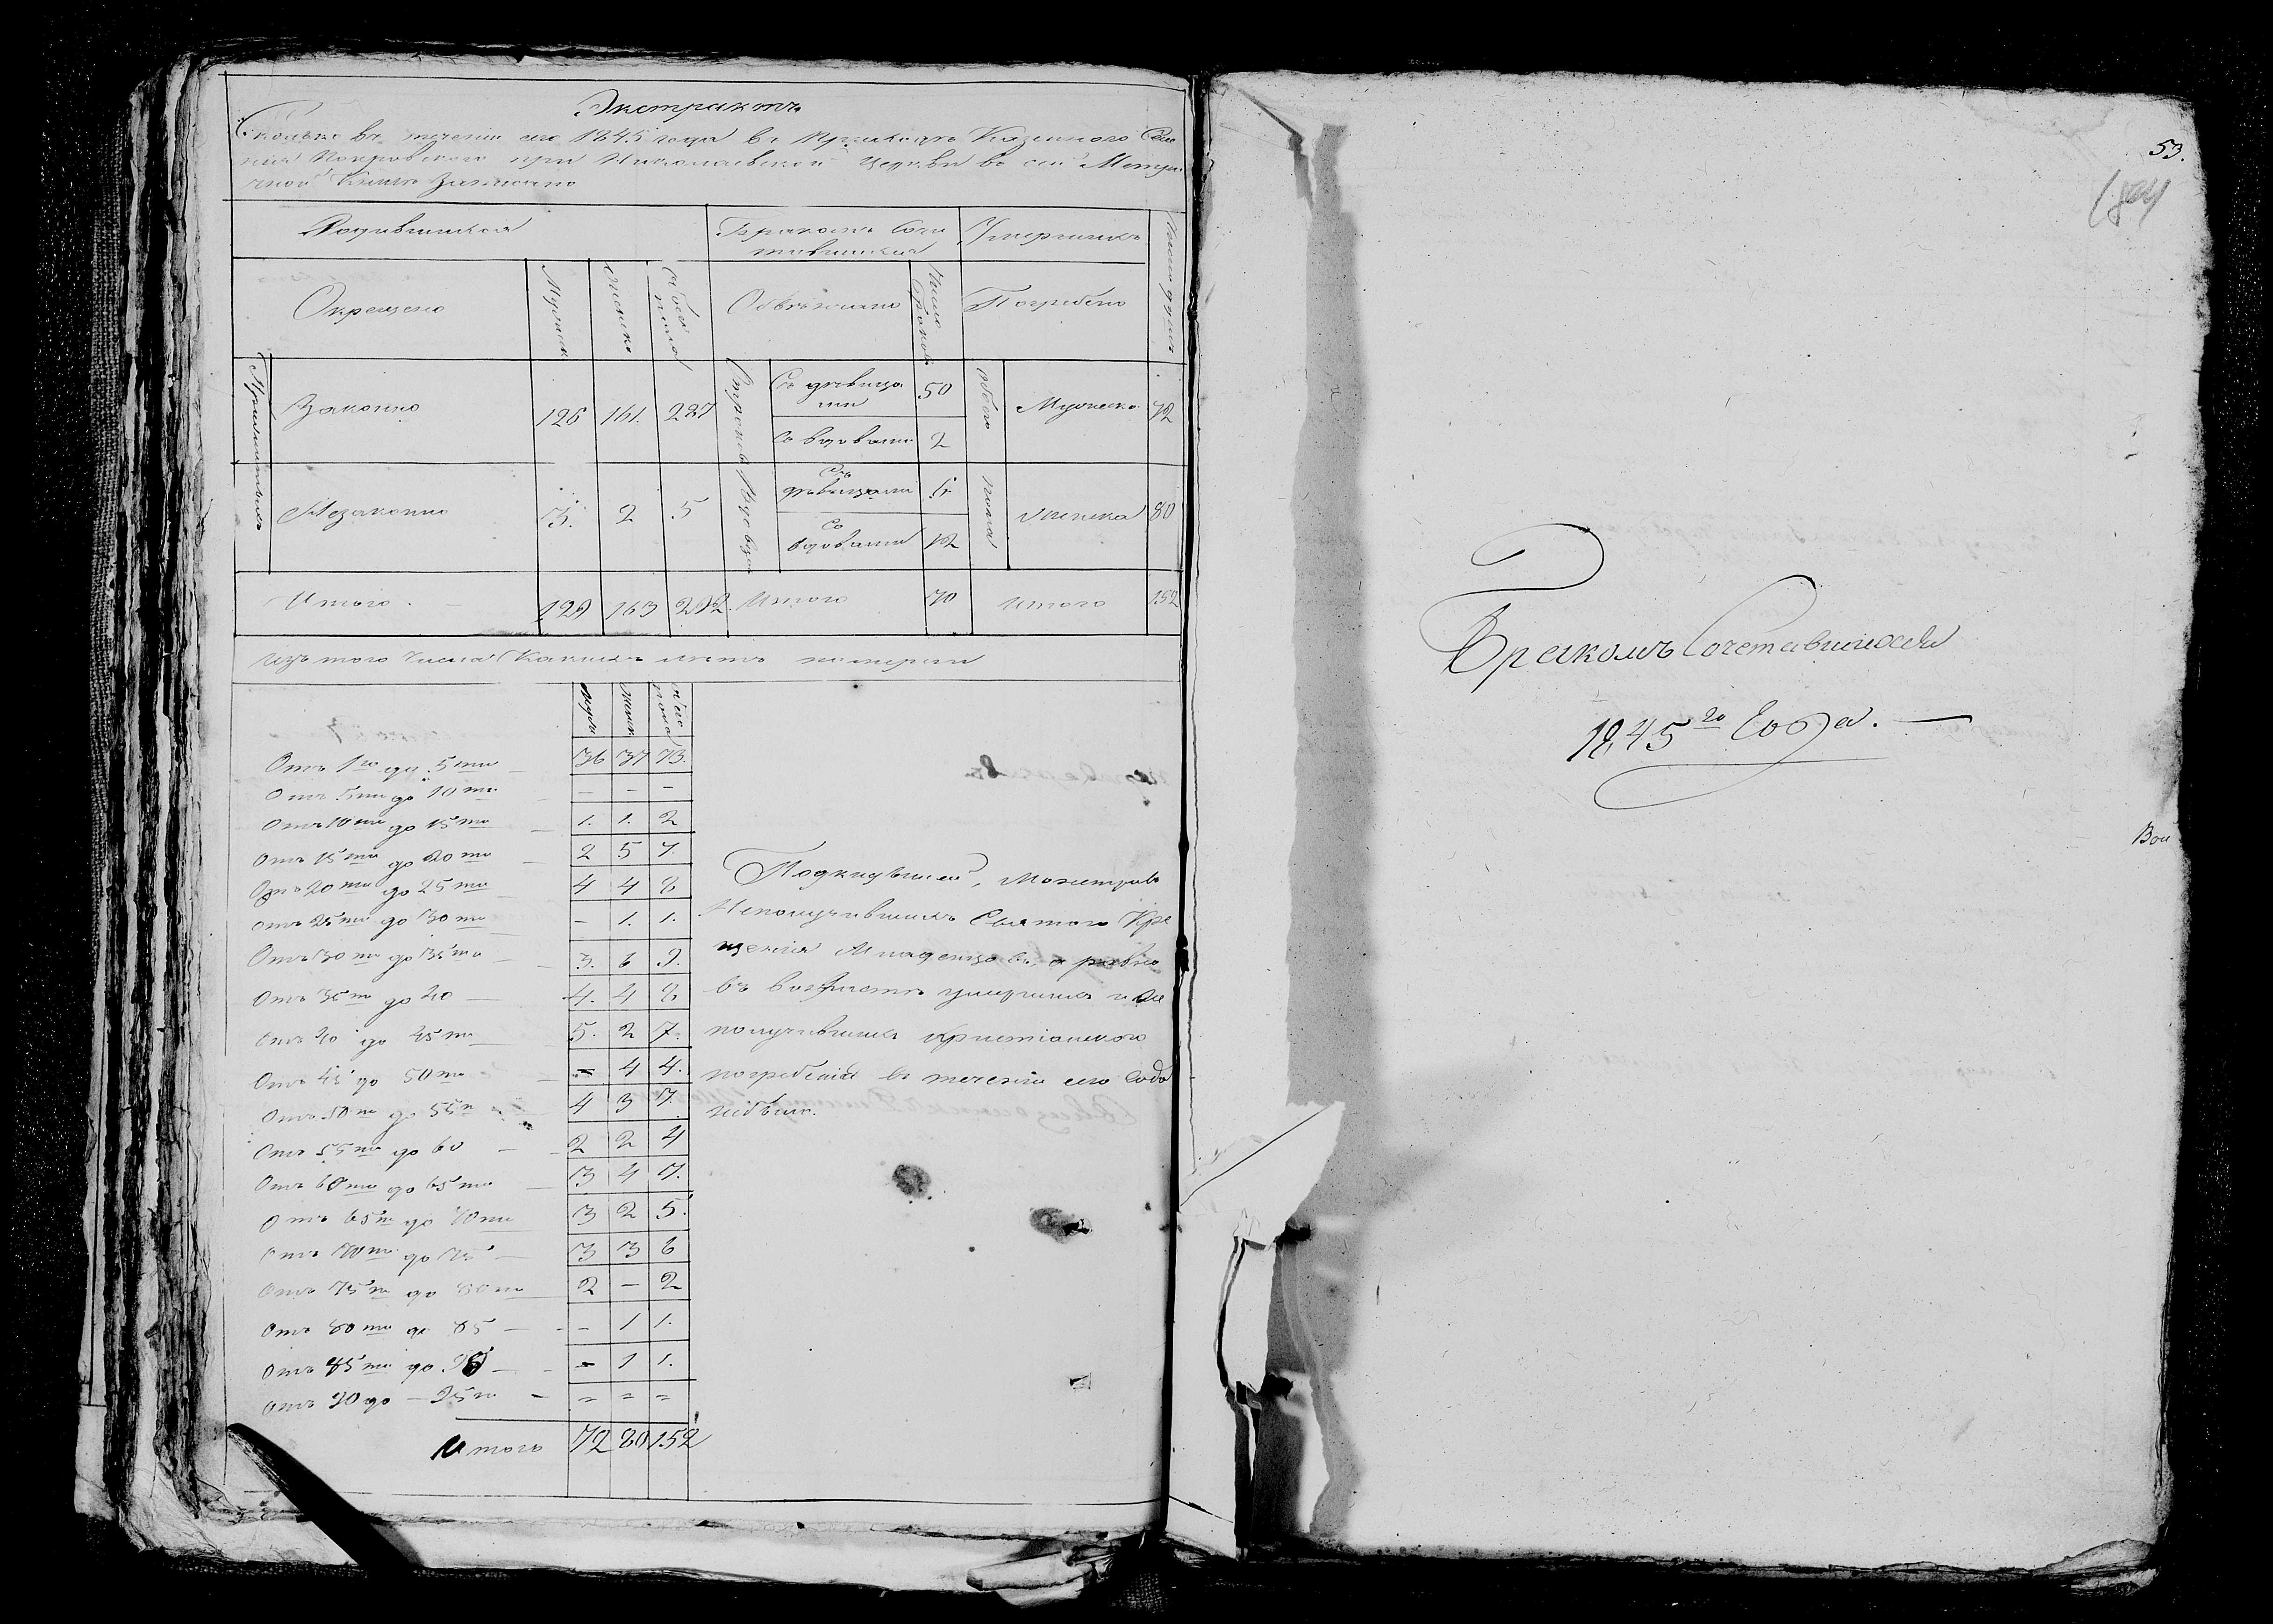 Экстрактъ
Сколько въ теченіи сего 1845 года въ Приходѣ Казенного Селе
нія Покровского при Николаевской Церкви въ сей Метри
чной Книгѣ Записано
Родившихся
Бракомъ Соче
тавшихся
Умершихъ
Окрещено
Мужеск
Женско
Обоего
пола
Обвѣнчано
Число
браковъ
Погребено
Законно
126 161. 287
Отроковъ
Съ дѣвица
ми
50
Со вдовами
2
обоего
Мужеска
72
Незаконно
3. 2 5
Вдовцов
Съ
дѣвицами
6
Со
вдовами
12
пола
Женска
80
Итого
129 163 292
Итого
70
Итого
152
Изъ того Числа Какихъ лѣтъ померли
муж
женск
обоего
пола
Отъ 1го до 5ти
36 37 73.
Отъ 5ти до 10ти
— — —
Отъ 10ти до 15ти
1. 1. 2
Отъ 15ти до 20ти
2 5 7.
Отъ 20ти до 25ти
4 4 8
Отъ 25ти до 30ти
— 1. 1.
Отъ 30ти до 35ти
3. 6 9.
Отъ 35ти до 40
4. 4 8
Отъ 40 до 45ти
5. 2 7.
Отъ 45 до 50ти
— 4 4.
Отъ 50ти до 55ти
4 3 7.
Отъ 55ти до 60
2 2 4
Отъ 60ти до 65ти
3 4 7.
Отъ 65ти до 70ти
3 2 5.
Отъ 70ти до 75
3 3 6
Отъ 75ти до 80ти
2 — 2
Отъ 80ти до 85
— 1 1.
Отъ 85ти до 90
— 1 1.
Отъ 90 до 95ти
= = =
Итого 72 80 152
Подкидышей, Монстровъ
Неполучившихъ Святого Кре
щенія Младенцовъ, а равно
въ возрастѣ умершихъ и не
получившихъ Христіанского
погребенія въ теченіи сего Года
небыло.
53.
Бракомъ Сочетавшихся
1845го Года. —